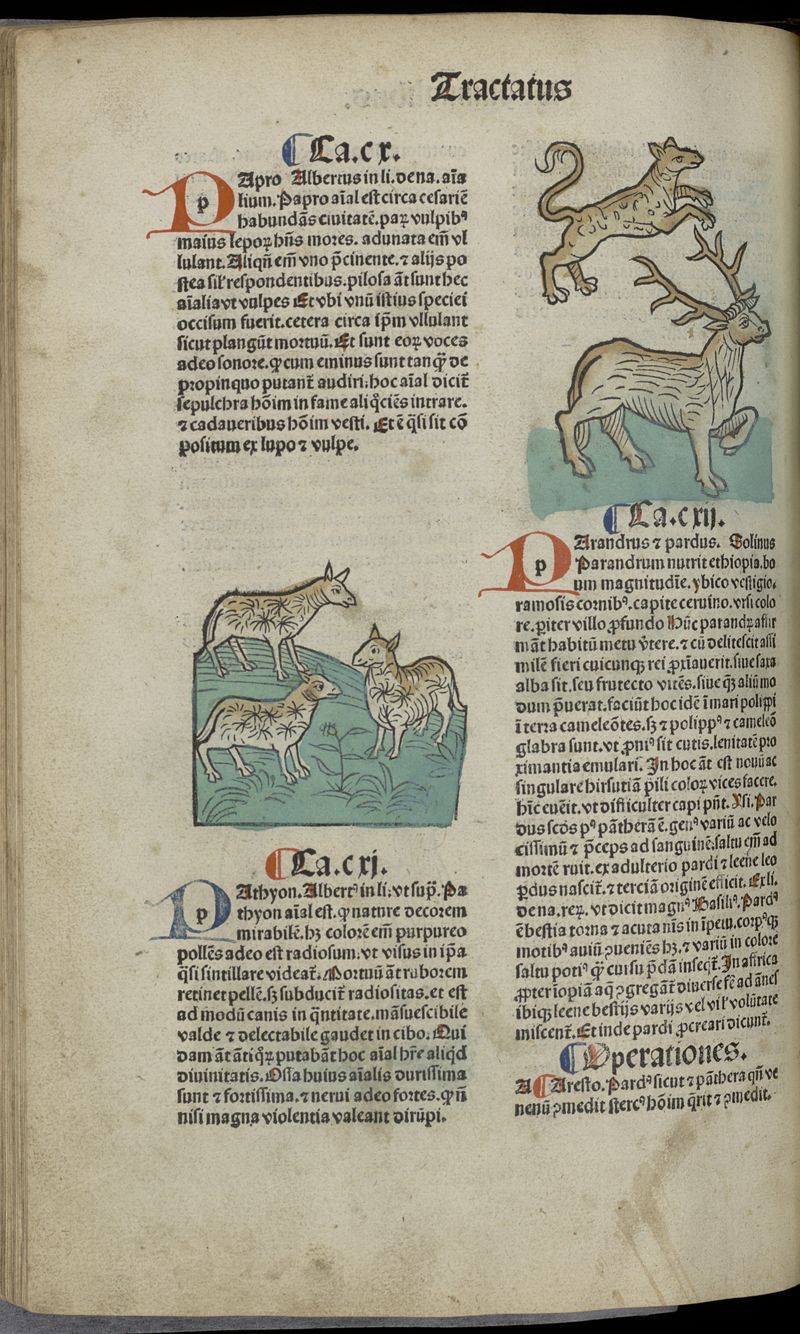 Tractatus
Ca.cx.
PApro Albertus in li. de na. aīa
lium. Papro aīal est circa cesariē
habundās ciuitatē. paꝝ vulpibꝰ
maius lepoꝝ hn̄s mores. adunata em̄ vl
lulant. Aliqn̄ em̄ vno p̄cinente. ⁊ alijs po
stea sil̉ respondentibus. pilosa āt sunt hec
aīalia vt vulpes Et vbi vnū istius speciei
occisum fuerit. cetera circa ip̄m vllulant
sicut plangūt mortuū. Et sunt eoꝝ voces
adeo sonore. ꝙ cum eminus sunt tanꝙ̄ de
propinquo putant̄ audiri. hoc aīal dicit̄
sepulchra hoīm in fame aliq̊ciēs intrare.
⁊ cadaueribus hoīm vesci. Et ē q̄si sit cō
positum ex lupo ⁊ vulpe.
Ca.cxj.
PAthyon. Albertꝰ in li. vt sup̄. Pa
thyon aīal est. ꝙ nature decorem
mirabilē. hꝫ colorē em̄ purpureo
pollēs adeo est radiosum. vt visus in ip̄a
q̄si sintillare videat̄. Mortuū āt ruborem
retinet pellē. sꝫ subducit̄ radiositas. et est
ad modū canis in q̄ntitate. māsuescibile
valde ⁊ delectabile gaudet in cibo. Qui
dam āt ātiq̊ꝝ putabāt hoc aīal hr̄e aliqd̄
diuinitatis. Ossa huius aīalis durissima
sunt ⁊ fortissima. ⁊ nerui adeo fortes. ꝙ n̄
nisi magna violentia valeant dirūpi.
Ca.cxij.
PArandrus ⁊ pardus. Solinus
Parandrum nutrit ethiopia. bo
um magnitudīe. ybico vestigio.
ramosis cornibꝰ. capite ceruino. vrsi colo
re. pariter villo ꝓfundo Hūc parandꝝ affir
māt habitū metu v̄tere. ⁊ cū delitescit assi
milē fieri cuicunqꝫ rei ꝓxīauerit. siue saxa
alba sit. seu frutecto virēs. siue qꝫ aliū mo
dum p̄uerat. faciūt hoc idē ī mari polippi
ī terra cameleōtes. sꝫ ⁊ polippꝰ ⁊ cameleō
glabra sunt. vt ꝓniꝰ sit cutis. lenitatē pro
ximantia emulari. In hoc āt est nouū ac
singulare hirsutiā pili coloꝝ vices facere.
hīc euēit. vt difficulter capi pn̄t. Ysi. Par
dus scd̄s pꝰ pātherā ē. genꝰ variū ac velo
cissimū ⁊ p̄ceps ad sanguinē. saltu em̄ ad
mortē ruit. ex adulterio pardi ⁊ leene leo
pardus nascit̄. ⁊ terciā originē efficit. Ex li.
de na. reꝝ. vt dicit magnꝰ Basiliꝰ. Pardꝰ
ē bestia torna ⁊ acuta nīs in īpetu. corpꝰqꝫ
motibꝰ auiū ꝓueniēs hꝫ. ⁊ variū in colore
saltu potiꝰ ꝙ̄ cursu p̄dā inseqt̄. In affrica
ꝓpter īopiā aq̄ ꝯgregāt̄ diuerse fe ad ānes
ibiqꝫ leene bestijs varijs vel vi l̉ volūtate
miscent̄. Et inde pardi ꝓcreari dicunt̄.
Operationes.
A Aresto. Pardꝰ sicut ⁊ pāthera qn̄ ve
nenū ꝯmedit stercꝰ hoīm q̄rit ⁊ ꝯmedit.